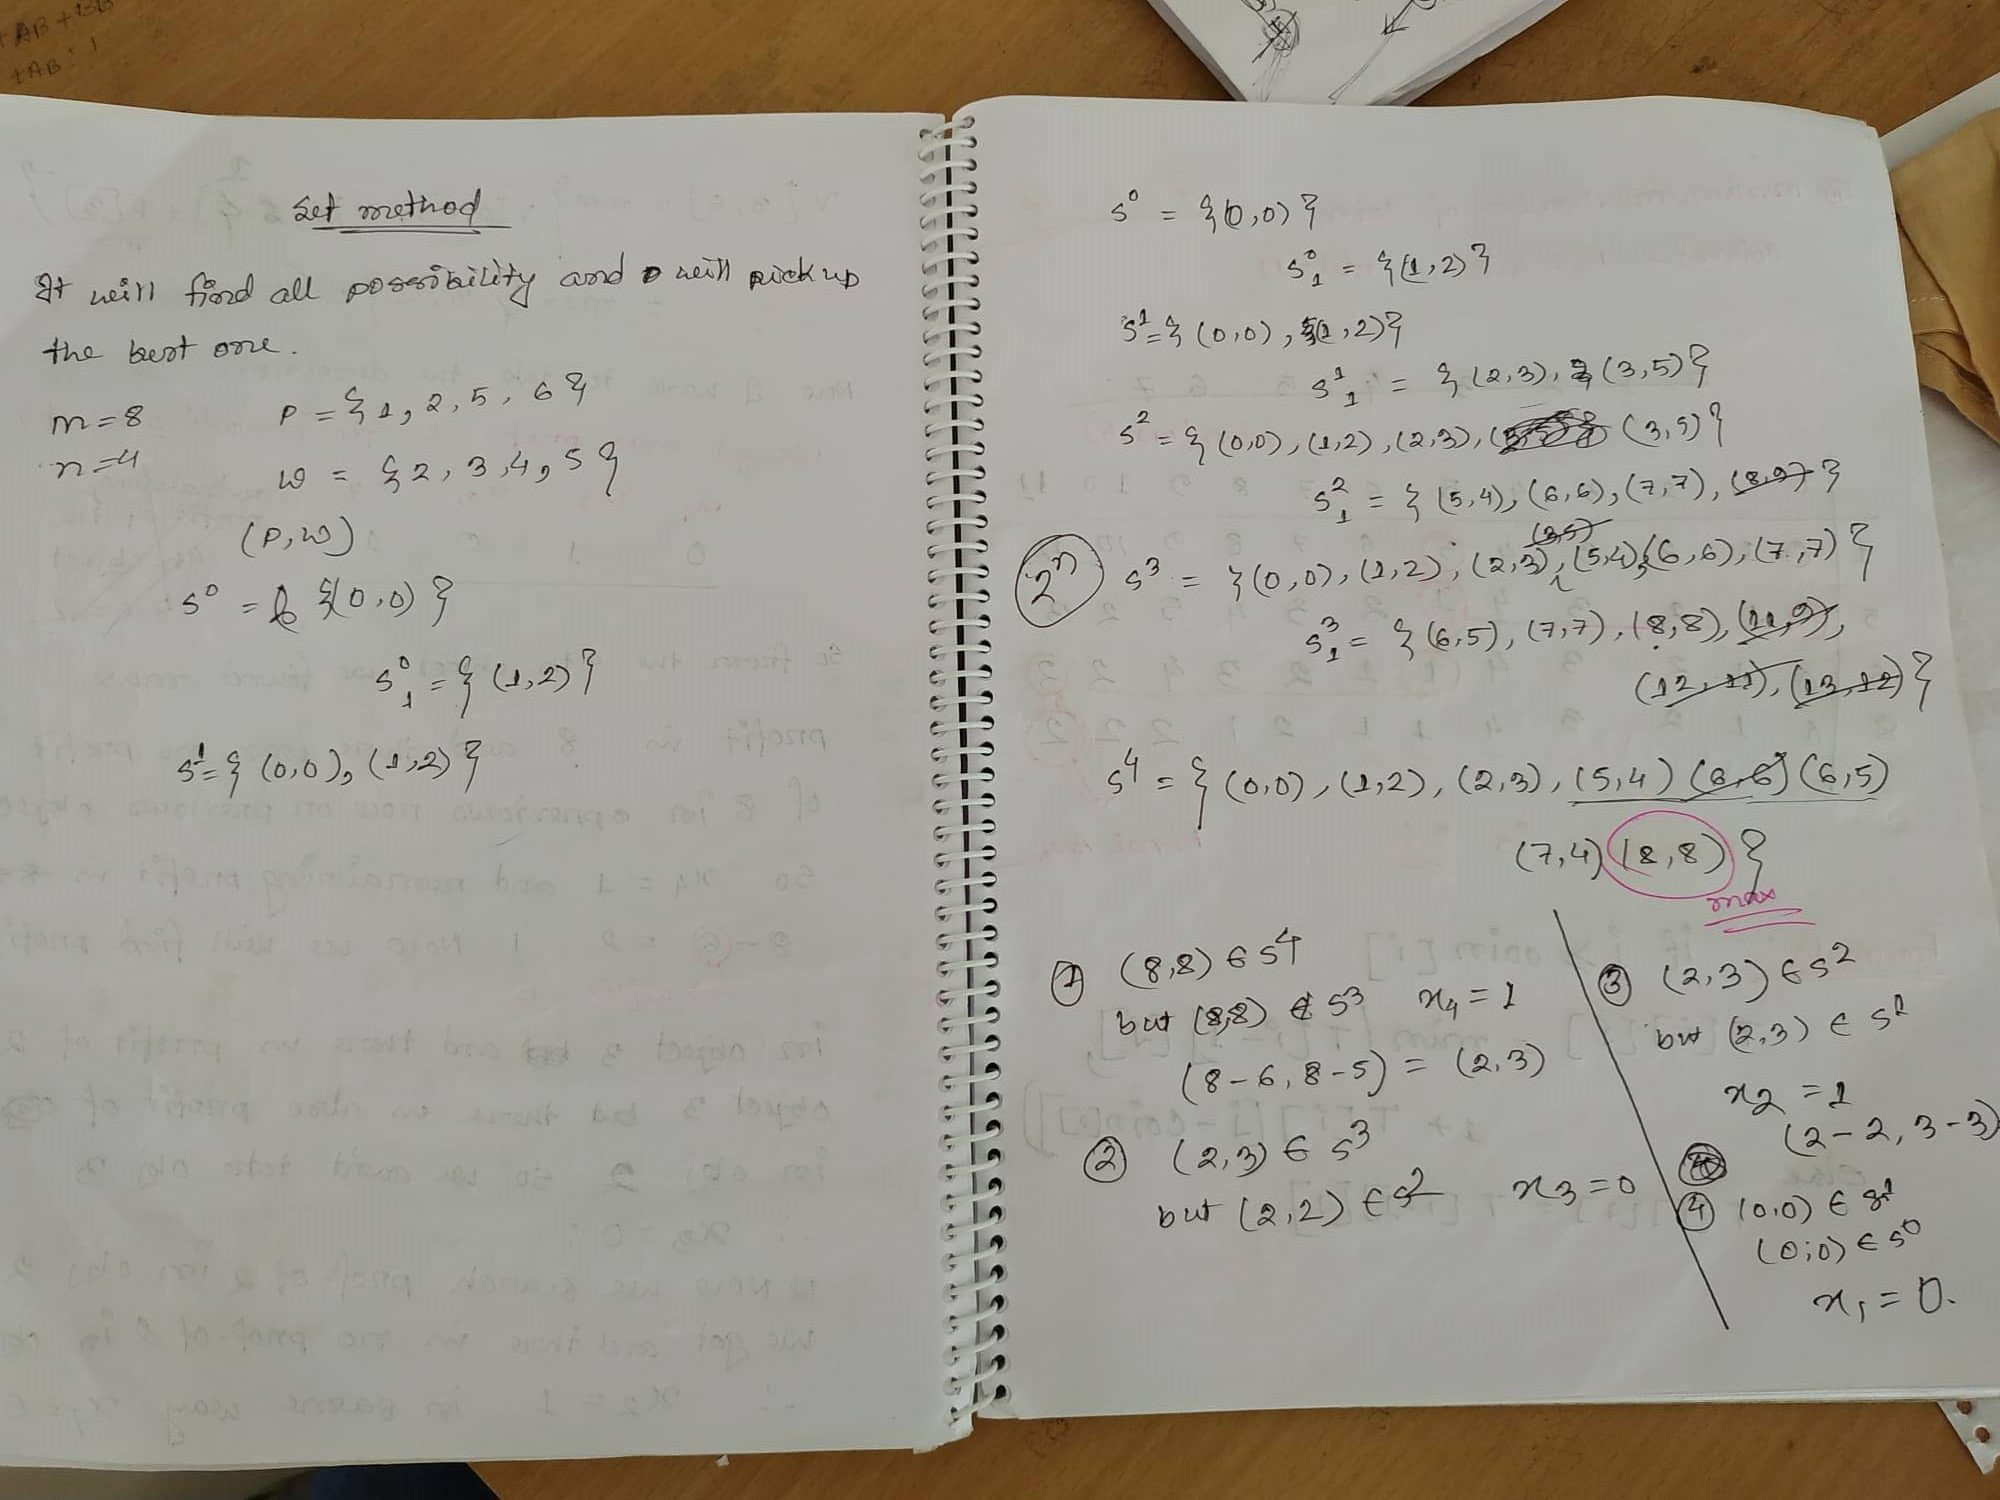 +AB+BB
+AB:1
Set method
It will find all possibility and will pick up
the best one.
m=8 P = {1, 2, 5, 6}
n=4 w = {2, 3, 4, 5}
(P, w)
S⁰ = {(0,0)}
S⁰₁ = {(1,2)}
S¹ = {(0,0), (1,2)}
S⁰ = {(0,0)}
S⁰₁ = {(1,2)}
S¹ = {(0,0), (1,2)}
S¹₁ = {(2,3), (3,5)}
S² = {(0,0), (1,2), (2,3), (3,5)}
S²₁ = {(5,4), (6,6), (7,7), (8,9)}
(3,5)
2ⁿ S³ = {(0,0), (1,2), (2,3), (5,4), (6,6), (7,7)}
S³₁ = {(6,5), (7,7), (8,8), (11,9),
(12,11), (13,12)}
S⁴ = {(0,0), (1,2), (2,3), (5,4) (6,6) (6,5)
(7,4) (8,8)}
max
① (8,8) ∈ S⁴
but (8,8) ∉ S³ x₄ = 1
(8-6, 8-5) = (2,3)
② (2,3) ∈ S³
but (2,2) ∈ S² x₃ = 0
③ (2,3) ∈ S²
but (2,3) ∈ S¹
x₂ = 1
(2-2, 3-3)
④ (0,0) ∈ S¹
(0,0) ∈ S⁰
x₁ = 0.